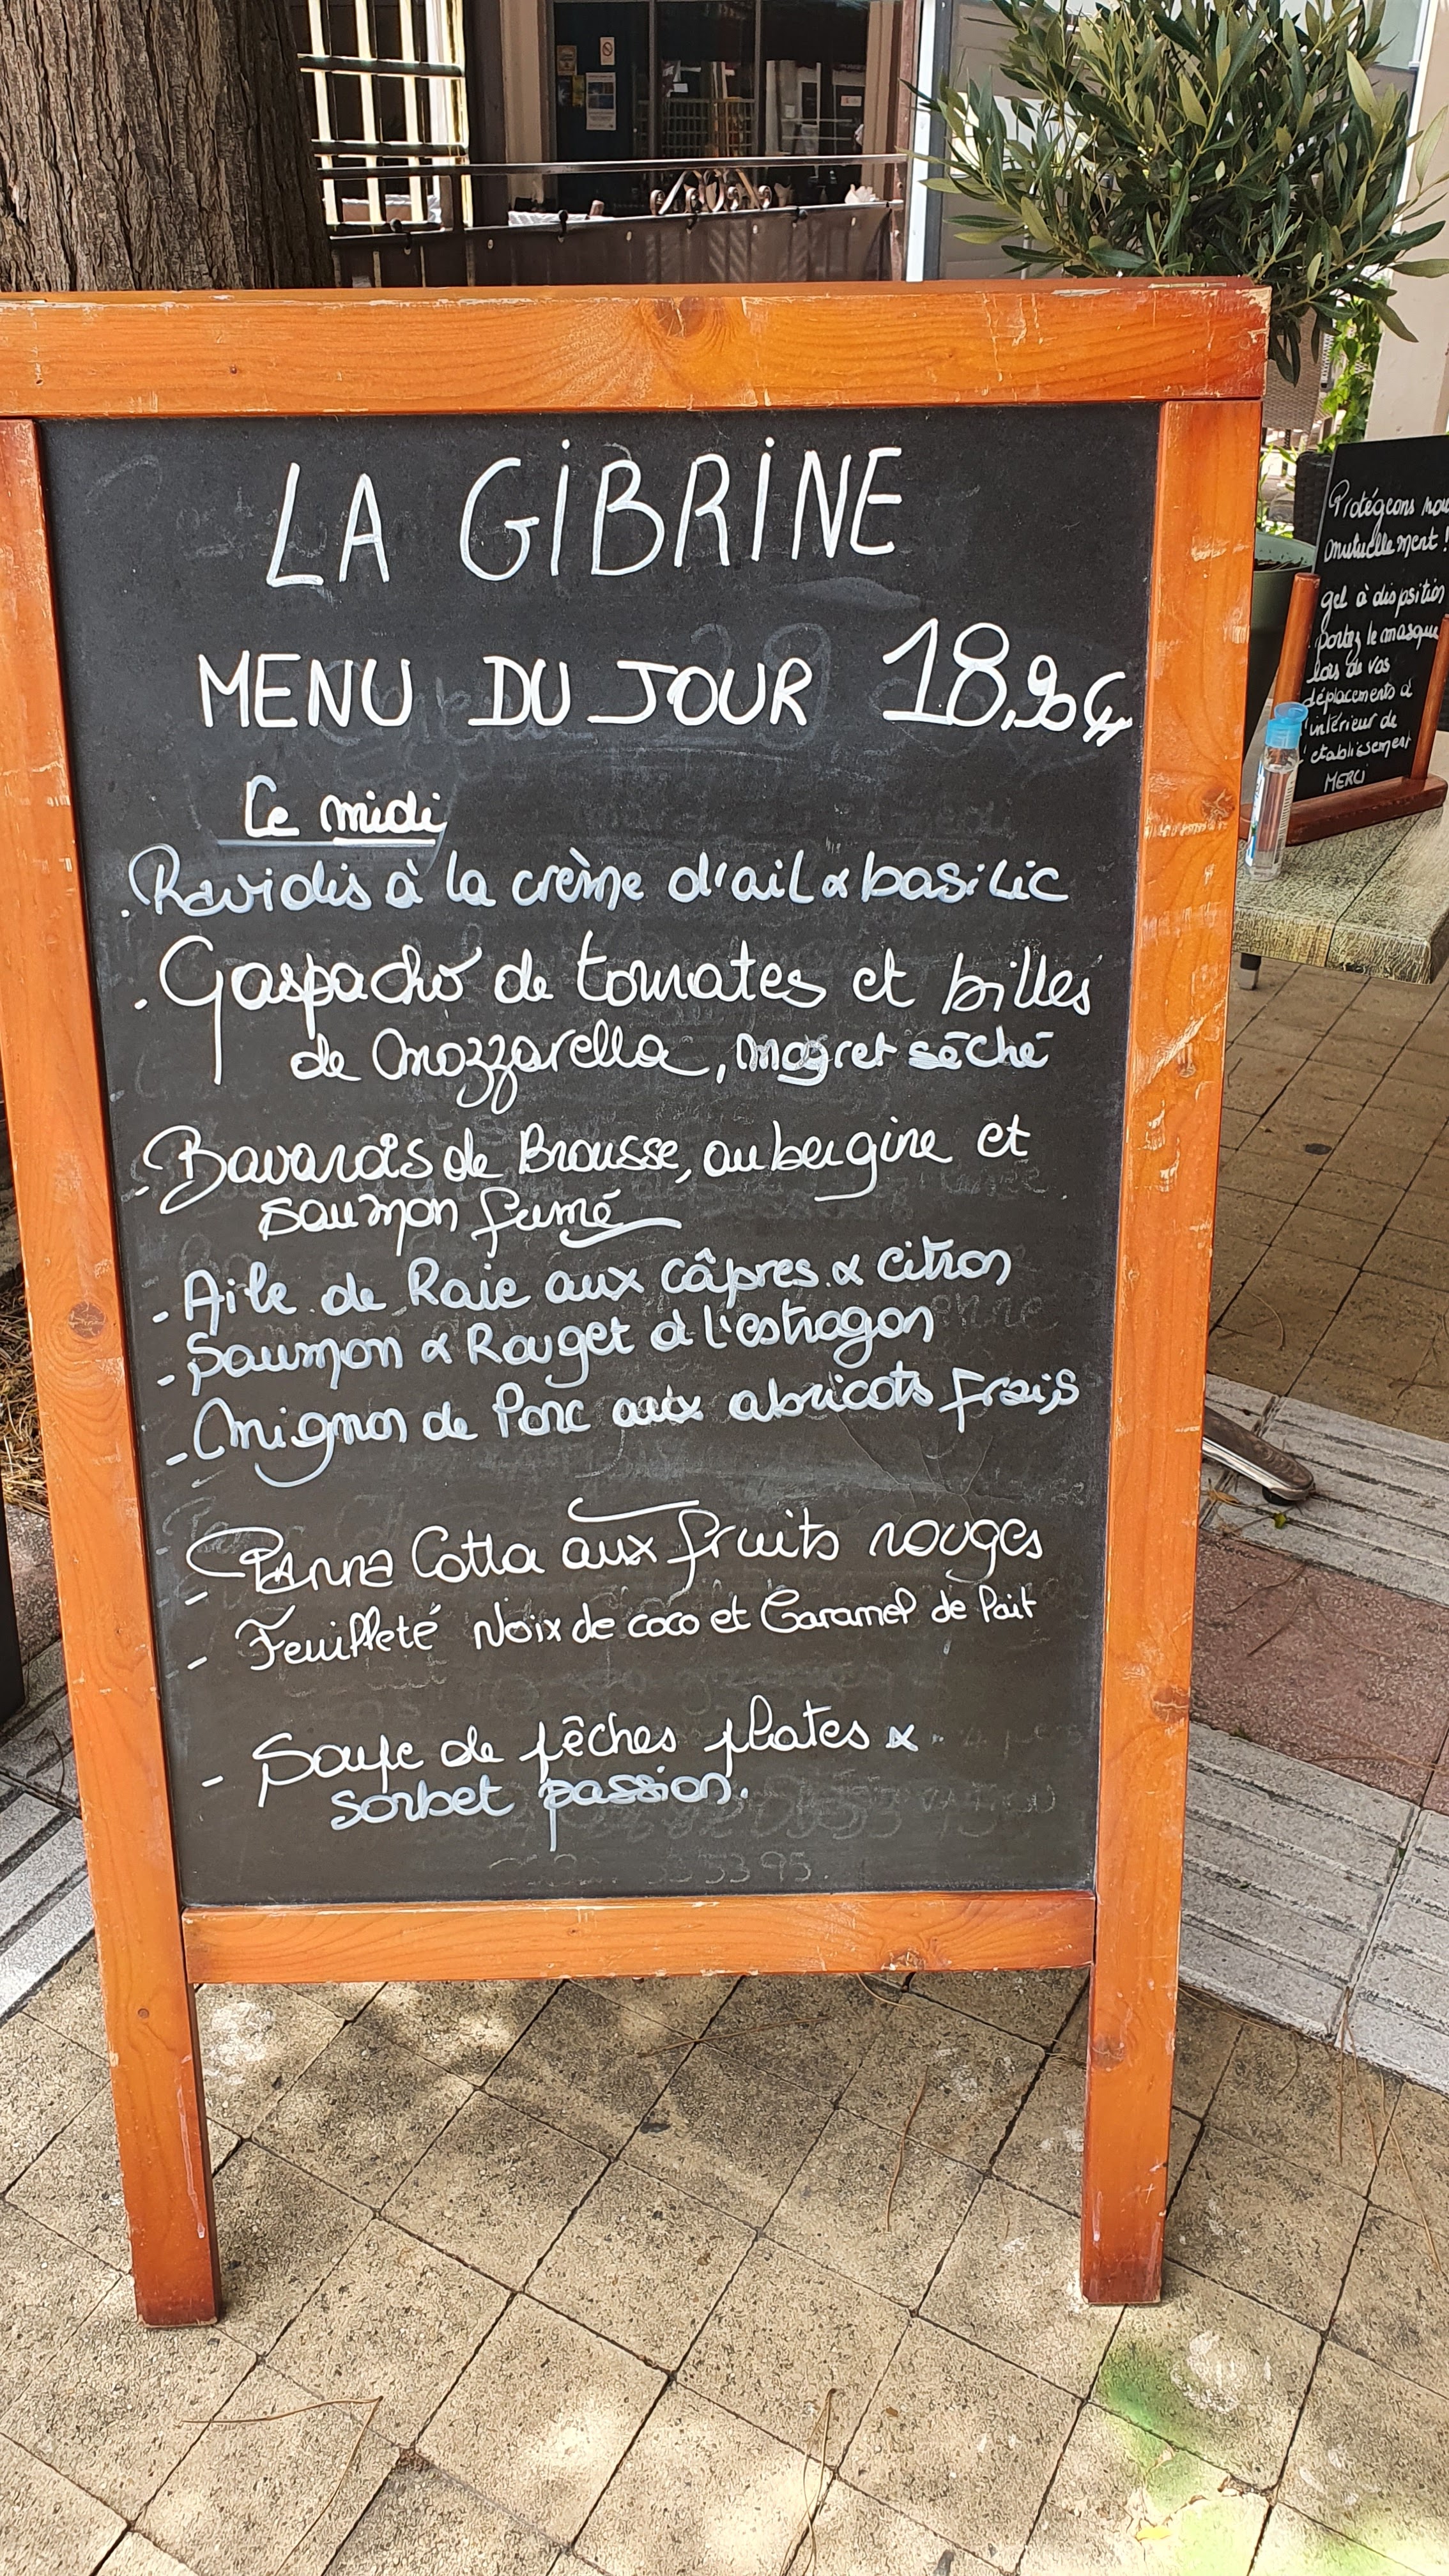 LA GiBRiNE
MENU DU JOUR 18,90€
Ce midi
. Raviolis à la crème d'ail & basilic
. Gaspacho de tomates et billes
de Mozzarella, magret séché
- Bavarois de Brousse, aubergine et
saumon fumé
- Aile de Raie aux câpres & citron
- Saumon & Rouget à l'estragon
- Mignon de Porc aux abricots frais
- Panna Cotta aux fruits rouges
- Feuilleté Noix de coco et Caramel de lait
- Soupe de pêches plates &
sorbet passion.
Protégeons nou
mutuellement !
gel à dispsition
portez le masque
lors de vos
déplacements à
l'intérieur de
l'etablissement
MERCI